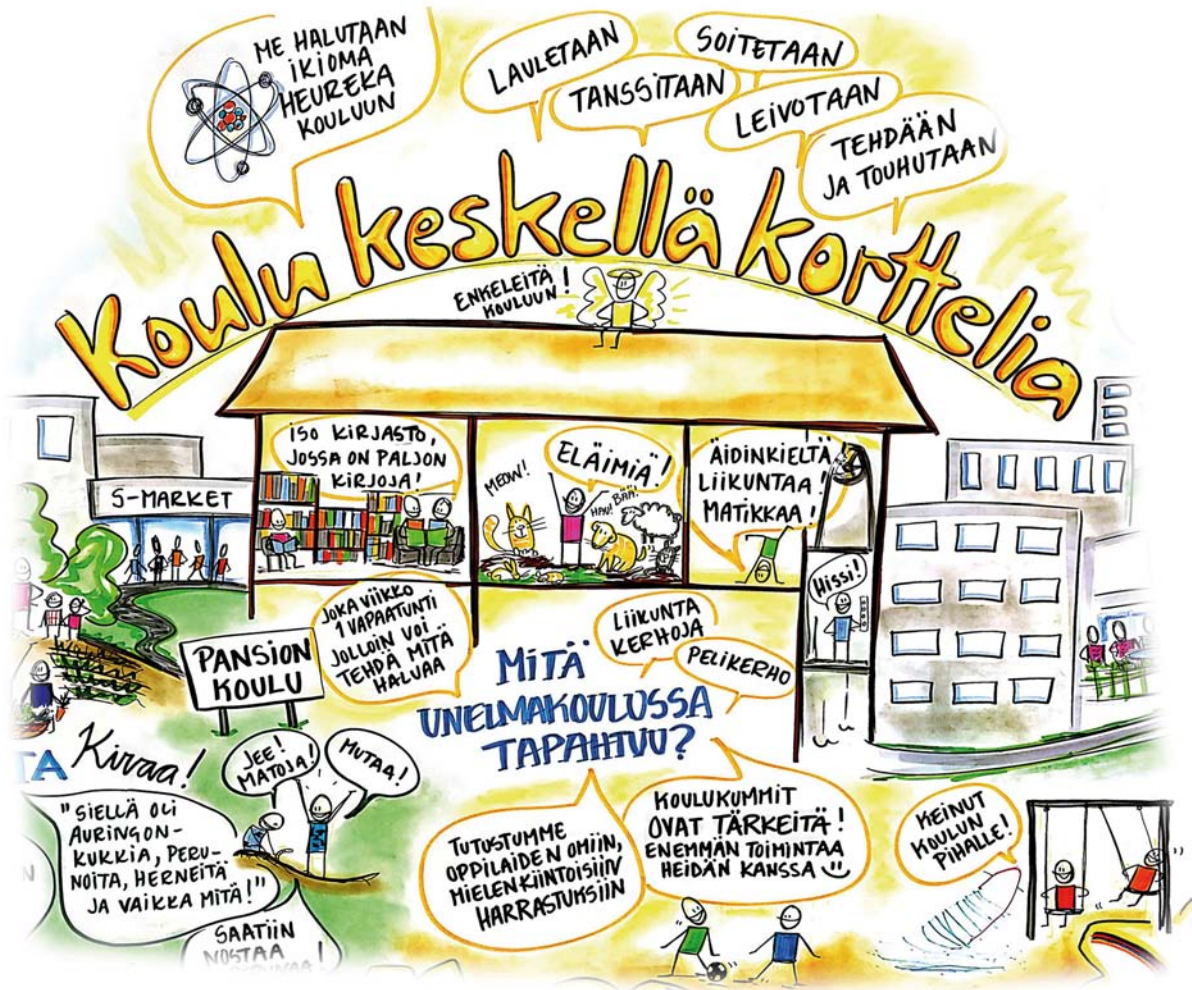 ME HALUTAAN
IKIOMA
HEUREKA
KOULUUN
LAULETAAN
SOITETAAN
TANSSITAAN
LEIVOTAAN
TEHDÄÄN
JA TOUHUTAAN
Koulu keskellä korttelia
ENKELEITÄ
KOULUUN!
ISO KIRJASTO,
JOSSA ON PALJON
KIRJOJA!
MEOW!
ELÄIMIÄ!
HAU!
BÄÄ!
ÄIDINKIELTÄ
LIIKUNTAA!
MATIKKAA!
S-MARKET
HISSI!
PANSION
KOULU
JOKA VIIKKO
1 VAPAATUNTI
JOLLOIN VOI
TEHDÄ MITÄ
HALUAA
LIIKUNTA
KERHOJA
PELIKERHO
MITÄ
UNELMAKOULUSSA
TAPAHTUU?
TA Kivaa!
JEE!
MATOJA!
MUTAA!
"SIELLÄ OLI
AURINGON-
KUKKIA, PERU-
NOITA, HERNEITÄ
JA VAIKKA MITÄ!"
SAATIIN
NOSTAA
TUTUSTUMME
OPPILAIDEN OMIIN,
MIELENKIINTOISIIN
HARRASTUKSIIN
KOULUKUMMIT
OVAT TÄRKEITÄ!
ENEMMÄN TOIMINTAA
HEIDÄN KANSSA
KEINUT
KOULUN
PIHALLE!